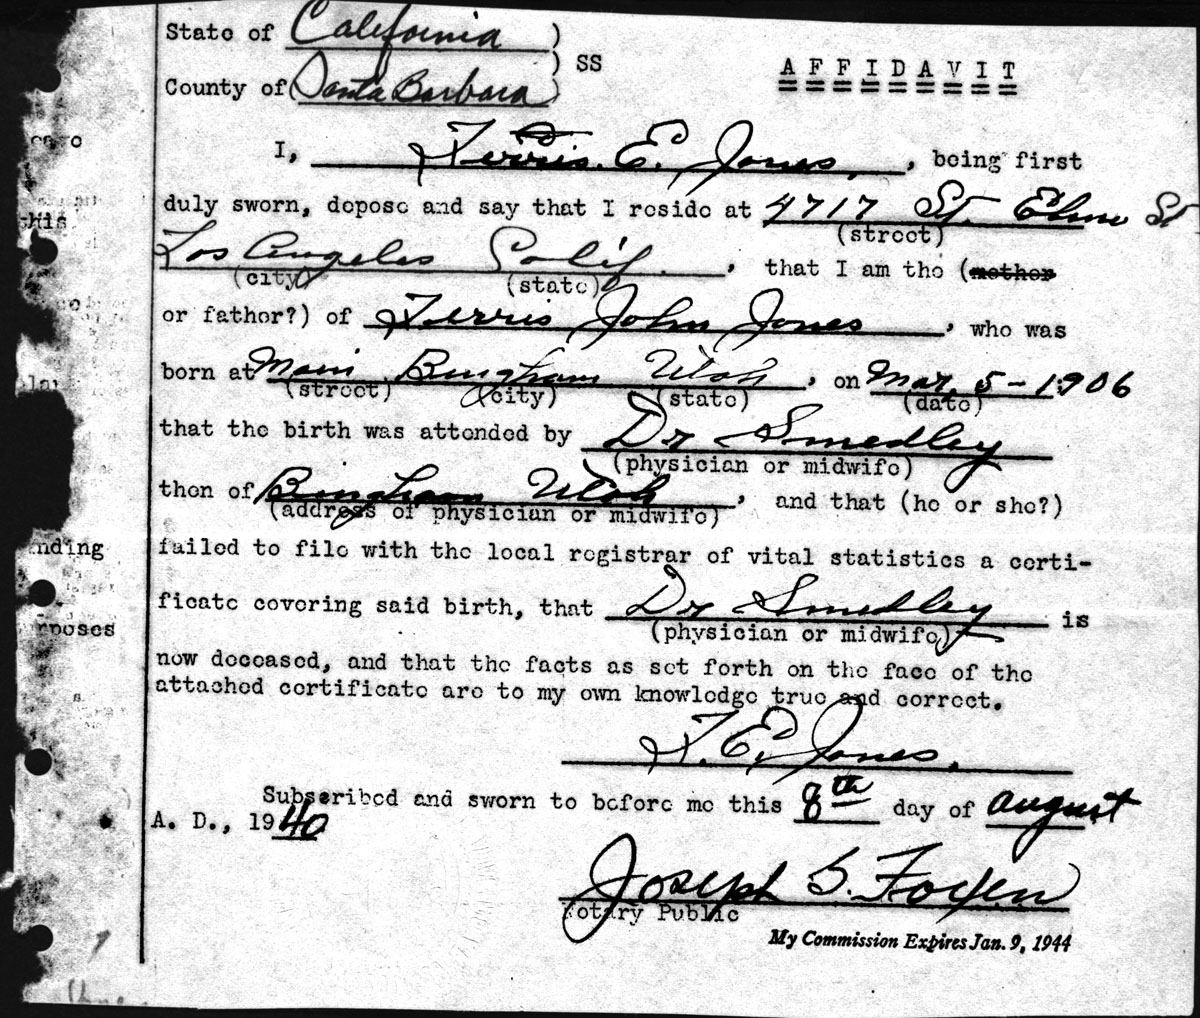 State of California )
) SS
County of Santa Barbara )
AFFIDAVIT
I, Ferris E. Jones, being first
duly sworn, depose and say that I reside at 4717 St. Elmo St
(street)
Los Angeles Calif. , that I am the (mother
(city) (state)
or father?) of Ferris John Jones , who was
born at Main Bingham Utah , on Mar. 5-1906
(street) (city) (state) (date)
that the birth was attended by Dr Smedley
(physician or midwife)
then of Bingham Utah , and that (he or she?)
(address of physician or midwife)
failed to file with the local registrar of vital statistics a certi-
ficate covering said birth, that Dr Smedley is
(physician or midwife)
now deceased, and that the facts as set forth on the face of the
attached certificate are to my own knowledge true and correct.
F. E. Jones.
Subscribed and sworn to before me this 8th day of August
A. D., 1940
Joseph S. Foxen
Notary Public
My Commission Expires Jan. 9, 1944
this
nding
rposes